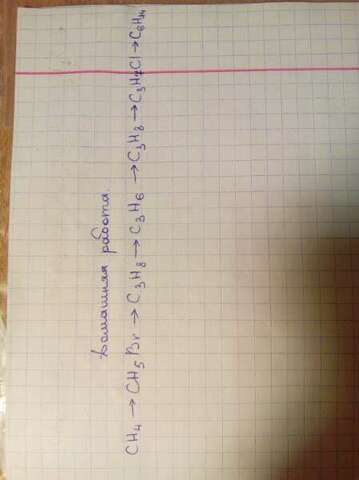 Домашняя работа.
CH₄ → CH₅Br → C₃H₈ → C₃H₆ → C₃H₈ → C₃H₇Cl → C₆H₁₄